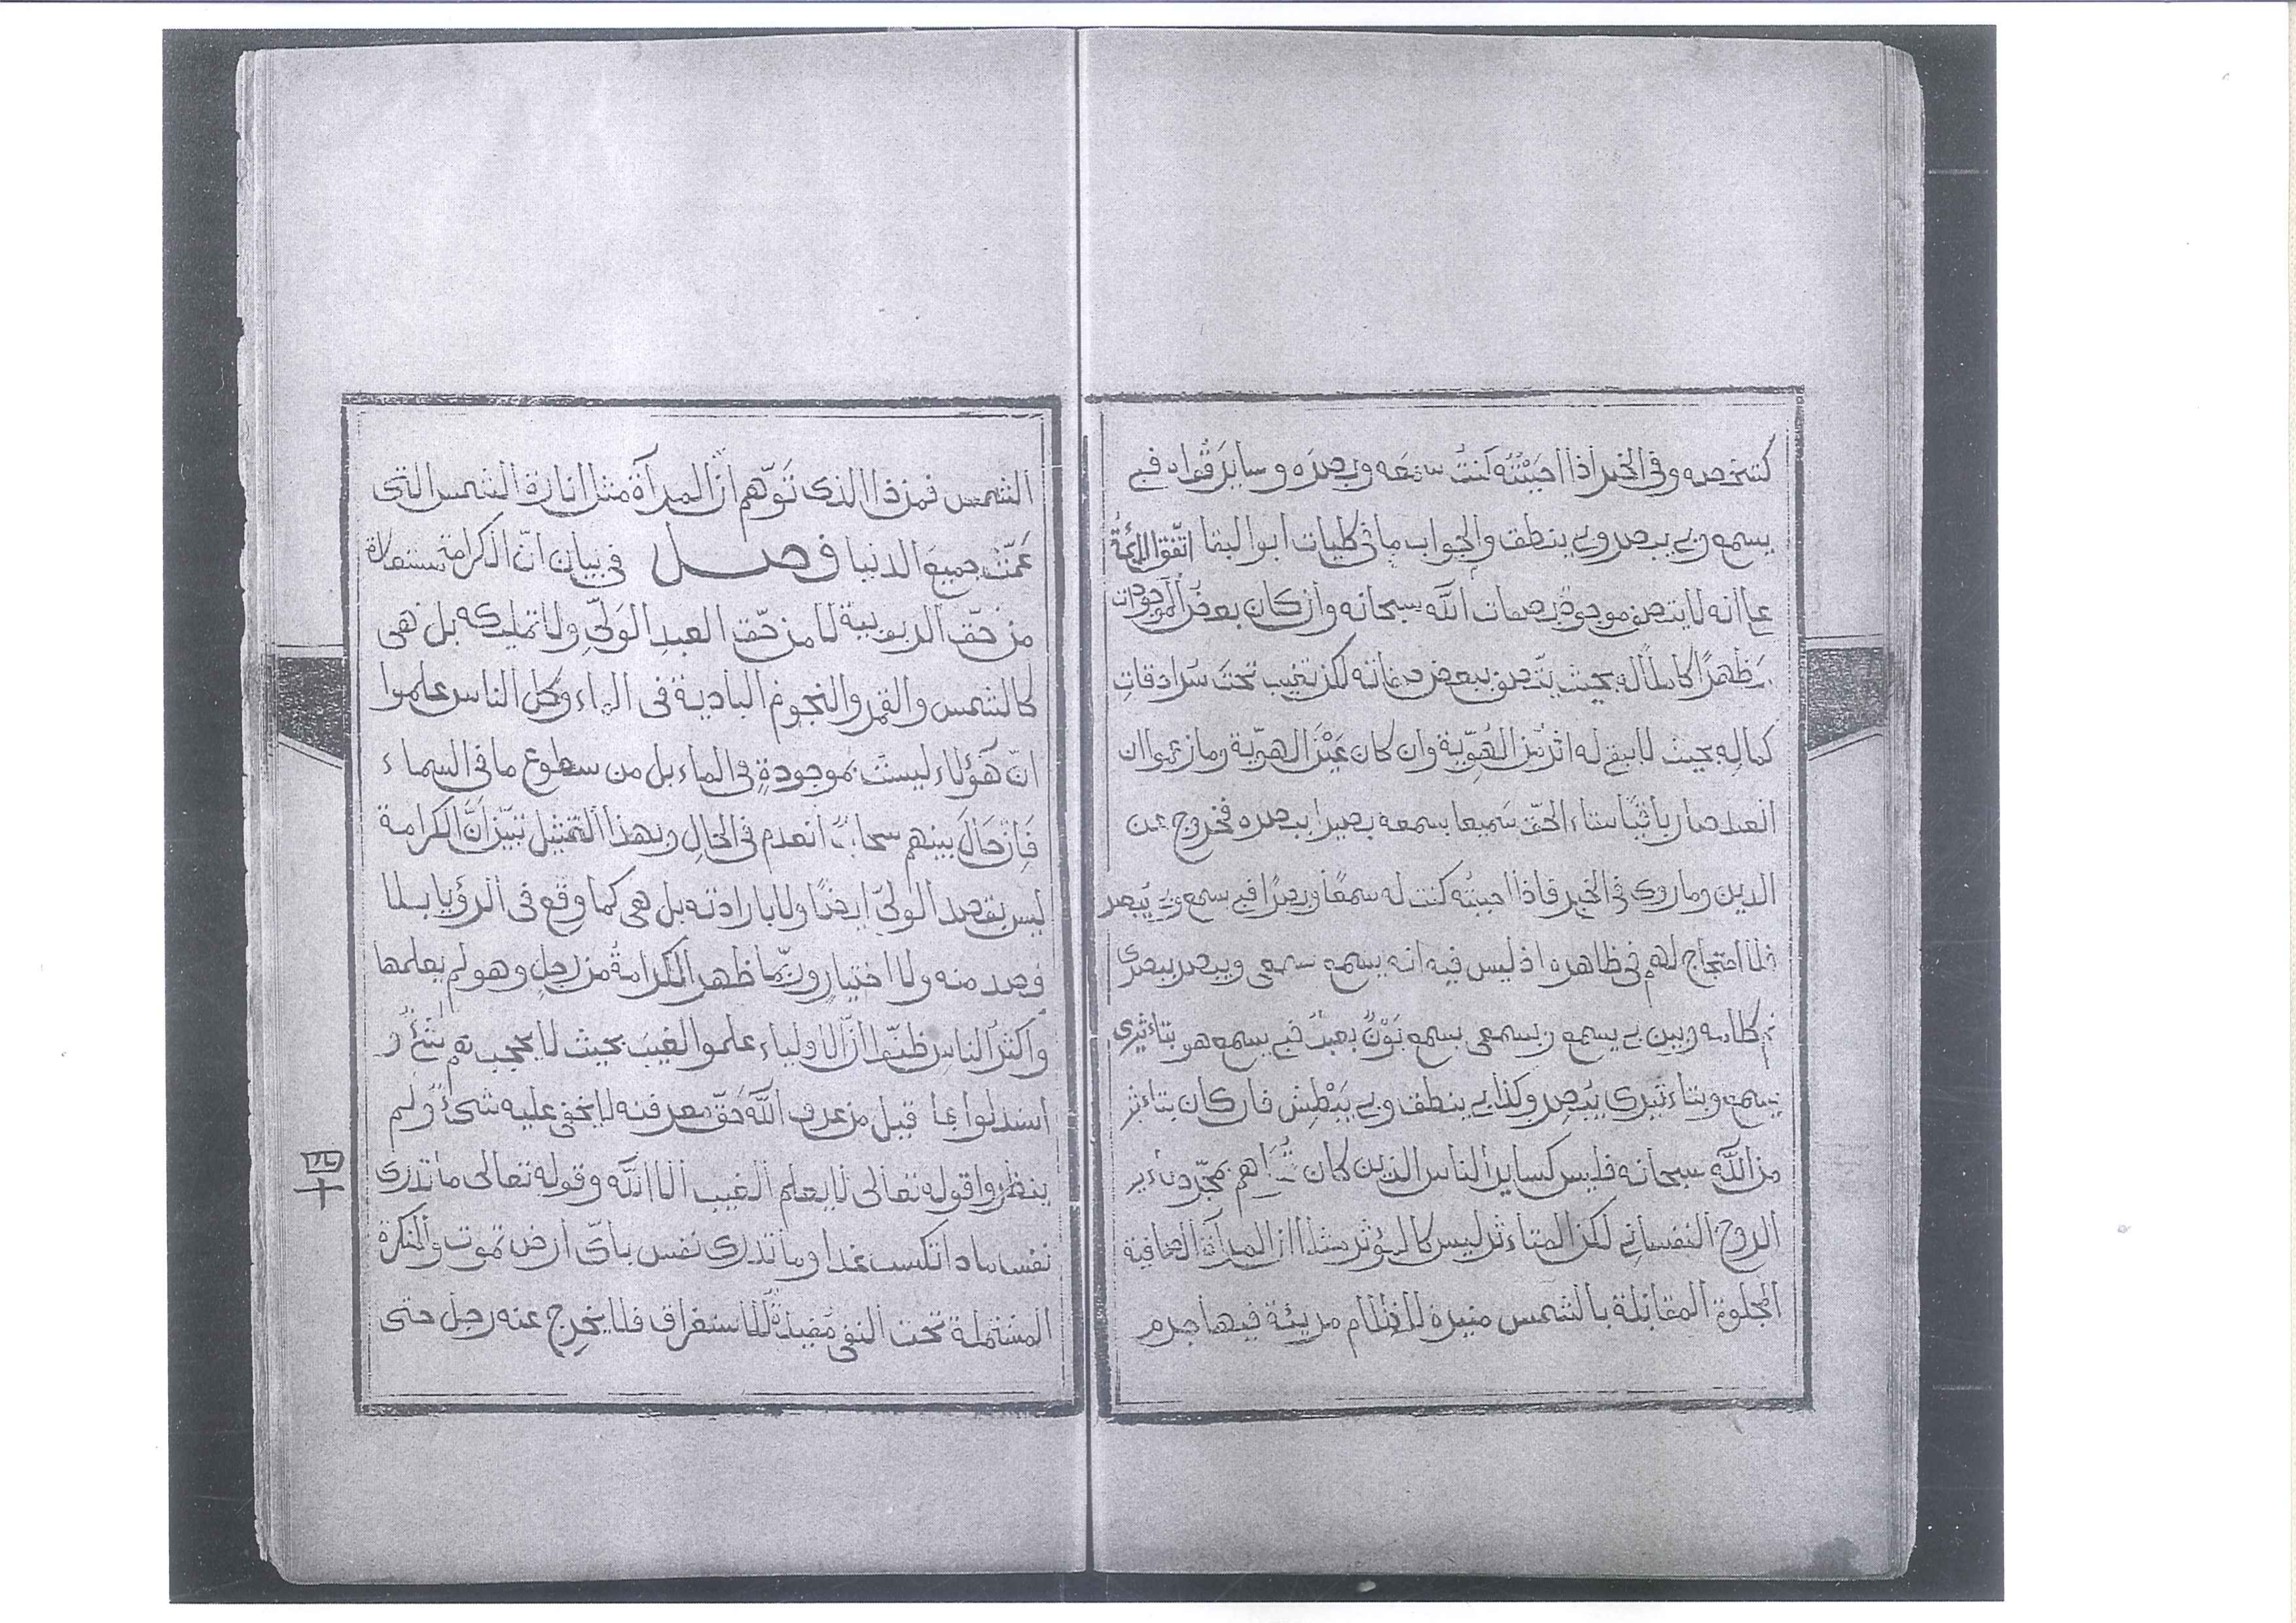 كشخصه وفى الخبر اذا احبَبْتُه كنتُ سَمْعَه وبصرَه وسايرَ قُواه فبى
يسمع وبى يبصر وبى ينطق والجواب ما فى كليات ابو البقا اتّفق الائمّة
على انه لا يتصف موجود بصفات اللّه سبحانه وان كان بعضُ الموجودات
مَظهرًا كاملًا له بحيث يتّصف ببعض صفاته لكن تغيب تحتَ سُرادقاتِ
كمالِه بحيث لا يبقى له اثر من الهُوِيّة وان كان عَيْنَ الهويّة وما زعموا ان
العبد صار باقيًا ببقاء الحقّ سَميعا بسمعه بصيرا ببصره فخروج عن
الدين وما روى فى الخبر فاذا احببتُه كنت له سمعًا وبصرًا فبى سمع وبى يُبصر
فلا احتجاج لهم فى ظاهره اذ ليس فيه انه يسمع بسمعى ويبصر ببصرى
ثم كلامه وبين بى يسمع وبسمعى يسمع بَوْنٌ بعيدٌ فبى يسمع هو بتاءثيرى
يسمع وبتاءثيرى يُبصِر وكذا بى ينطق وبى يَبْطِش فان كان بتاءثير
من اللّه سبحانه فليس كساير الناس الذين كان هم بمجرّد تاءثير
الروح النفسانى لكن المتاءثر ليس كالمؤثر مثلا ان المرآة الصافية
المجلوة المقابلة بالشمس منيرة للظلام مريئة فيها جرم
الشمس فمن ذا الذى تَوّهم انّ المرآة مثل انارة الشمس التى
عَمّتْ جميعَ الدنيا فصل فى بيان انّ الكرامة
من حقّ الربوبية لا من حقّ العبدِ الوَلىِّ ولا تمليكه بل هى
كالشمس والقمر والنجوم البادية فى الماء وكل الناس علموا
انّ هَؤلاء ليسَتْ بموجودةٍ فى الماء بل من سطوع ما فى السماء
فَاِن حَالَ بينهم سحابٌ انعدم فى الحالِ وبهذا التمثيل تبيّن اَنَّ الكرامة
ليس بقصد الولىّ ايضًا ولا بارادته بل هى كما وقع فى الرؤيا بلا
قصد منه ولا اختيارٍ وربّما ظهر الكرامةُ من رجلٍ وهو لم يعلمها
واكثرُ الناس ظنّوا انّ الاولياء علموا الغيبَ بحيث لا يحجب
استدلوا بما قيل من عرف اللّه حَقَّ معرفته لا يخفى عليه شىءٌ ولم
ينظروا قوله تعالى لا يعلم الغيب الا اللّه وقوله تعالى ما تدرى
نفس ماذا تكسب غدا وما تدرى نفس باىّ ارض تموت والنكرة
المشتملة تحت النفى مُفيدةٌ للاستغراق فلا يخرج عنه رجل حتى
四十